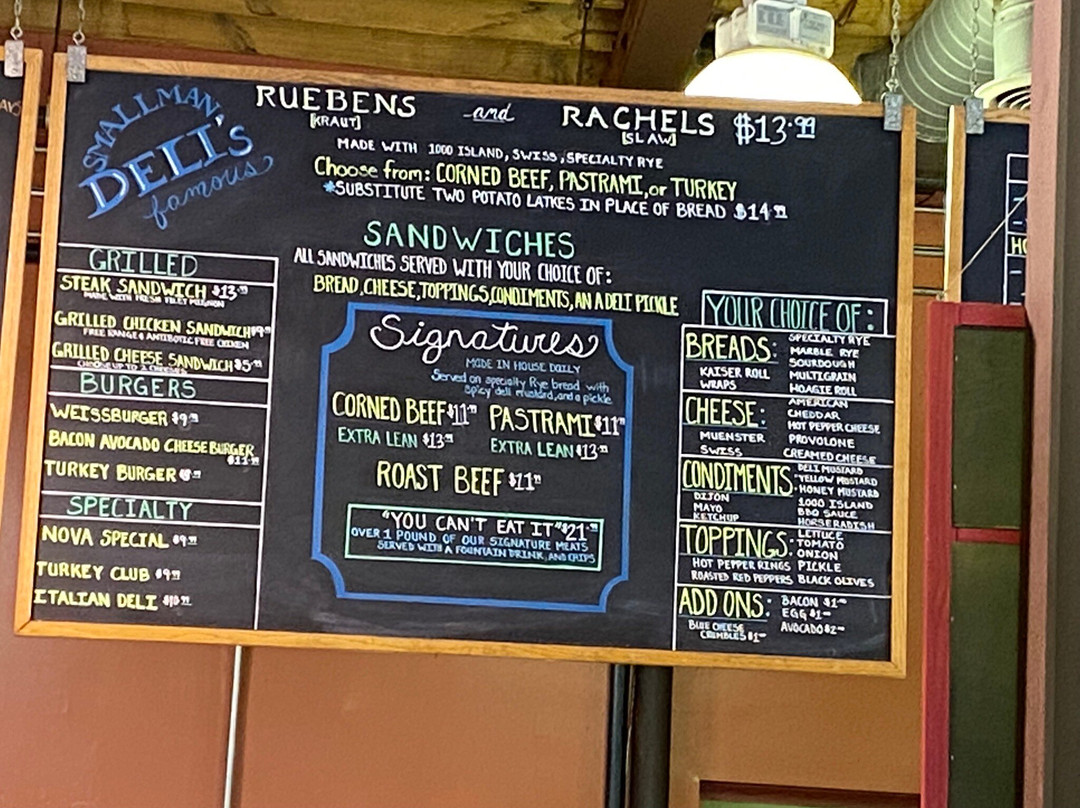 SMALLMAN
DELI'S
famous
RUEBENS and RACHELS $13.99
[KRAUT] [SLAW]
MADE WITH 1000 ISLAND, SWISS, SPECIALTY RYE
Choose from: CORNED BEEF, PASTRAMI, or TURKEY
*SUBSTITUTE TWO POTATO LATKES IN PLACE OF BREAD $14.99
SANDWICHES
ALL SANDWICHES SERVED WITH YOUR CHOICE OF:
BREAD, CHEESE, TOPPINGS, CONDIMENTS, AN A DELI PICKLE
GRILLED
STEAK SANDWICH $13.99
MADE WITH FRESH FILET MIGNON
GRILLED CHICKEN SANDWICH $9.99
FREE RANGE & ANTIBIOTIC FREE CHICKEN
GRILLED CHEESE SANDWICH $5.99
CHOOSE UP TO 2 CHEESES
BURGERS
WEISSBURGER $9.99
BACON AVOCADO CHEESEBURGER
$11.99
TURKEY BURGER
SPECIALTY
NOVA SPECIAL $9.99
TURKEY CLUB $9.99
ITALIAN DELI $10.99
Signatures
MADE IN HOUSE DAILY
Served on specialty Rye bread with
spicy deli mustard, and a pickle
CORNED BEEF $11.99 PASTRAMI $11.99
EXTRA LEAN $13.99 EXTRA LEAN $13.99
ROAST BEEF $11.99
"YOU CAN'T EAT IT" $21.99
OVER 1 POUND OF OUR SIGNATURE MEATS
SERVED WITH A FOUNTAIN DRINK, AND CHIPS
YOUR CHOICE OF:
BREADS: SPECIALTY RYE
MARBLE RYE
SOURDOUGH
KAISER ROLL MULTIGRAIN
WRAPS HOAGIE ROLL
CHEESE: AMERICAN
CHEDDAR
HOT PEPPER CHEESE
MUENSTER PROVOLONE
SWISS CREAMED CHEESE
CONDIMENTS: DELI MUSTARD
YELLOW MUSTARD
HONEY MUSTARD
DIJON 1000 ISLAND
MAYO BBQ SAUCE
KETCHUP HORSERADISH
TOPPINGS: LETTUCE
TOMATO
ONION
HOT PEPPER RINGS PICKLE
ROASTED RED PEPPERS BLACK OLIVES
ADD ONS: BACON $1
EGG $1
BLUE CHEESE AVOCADO $2
CRUMBLES $1